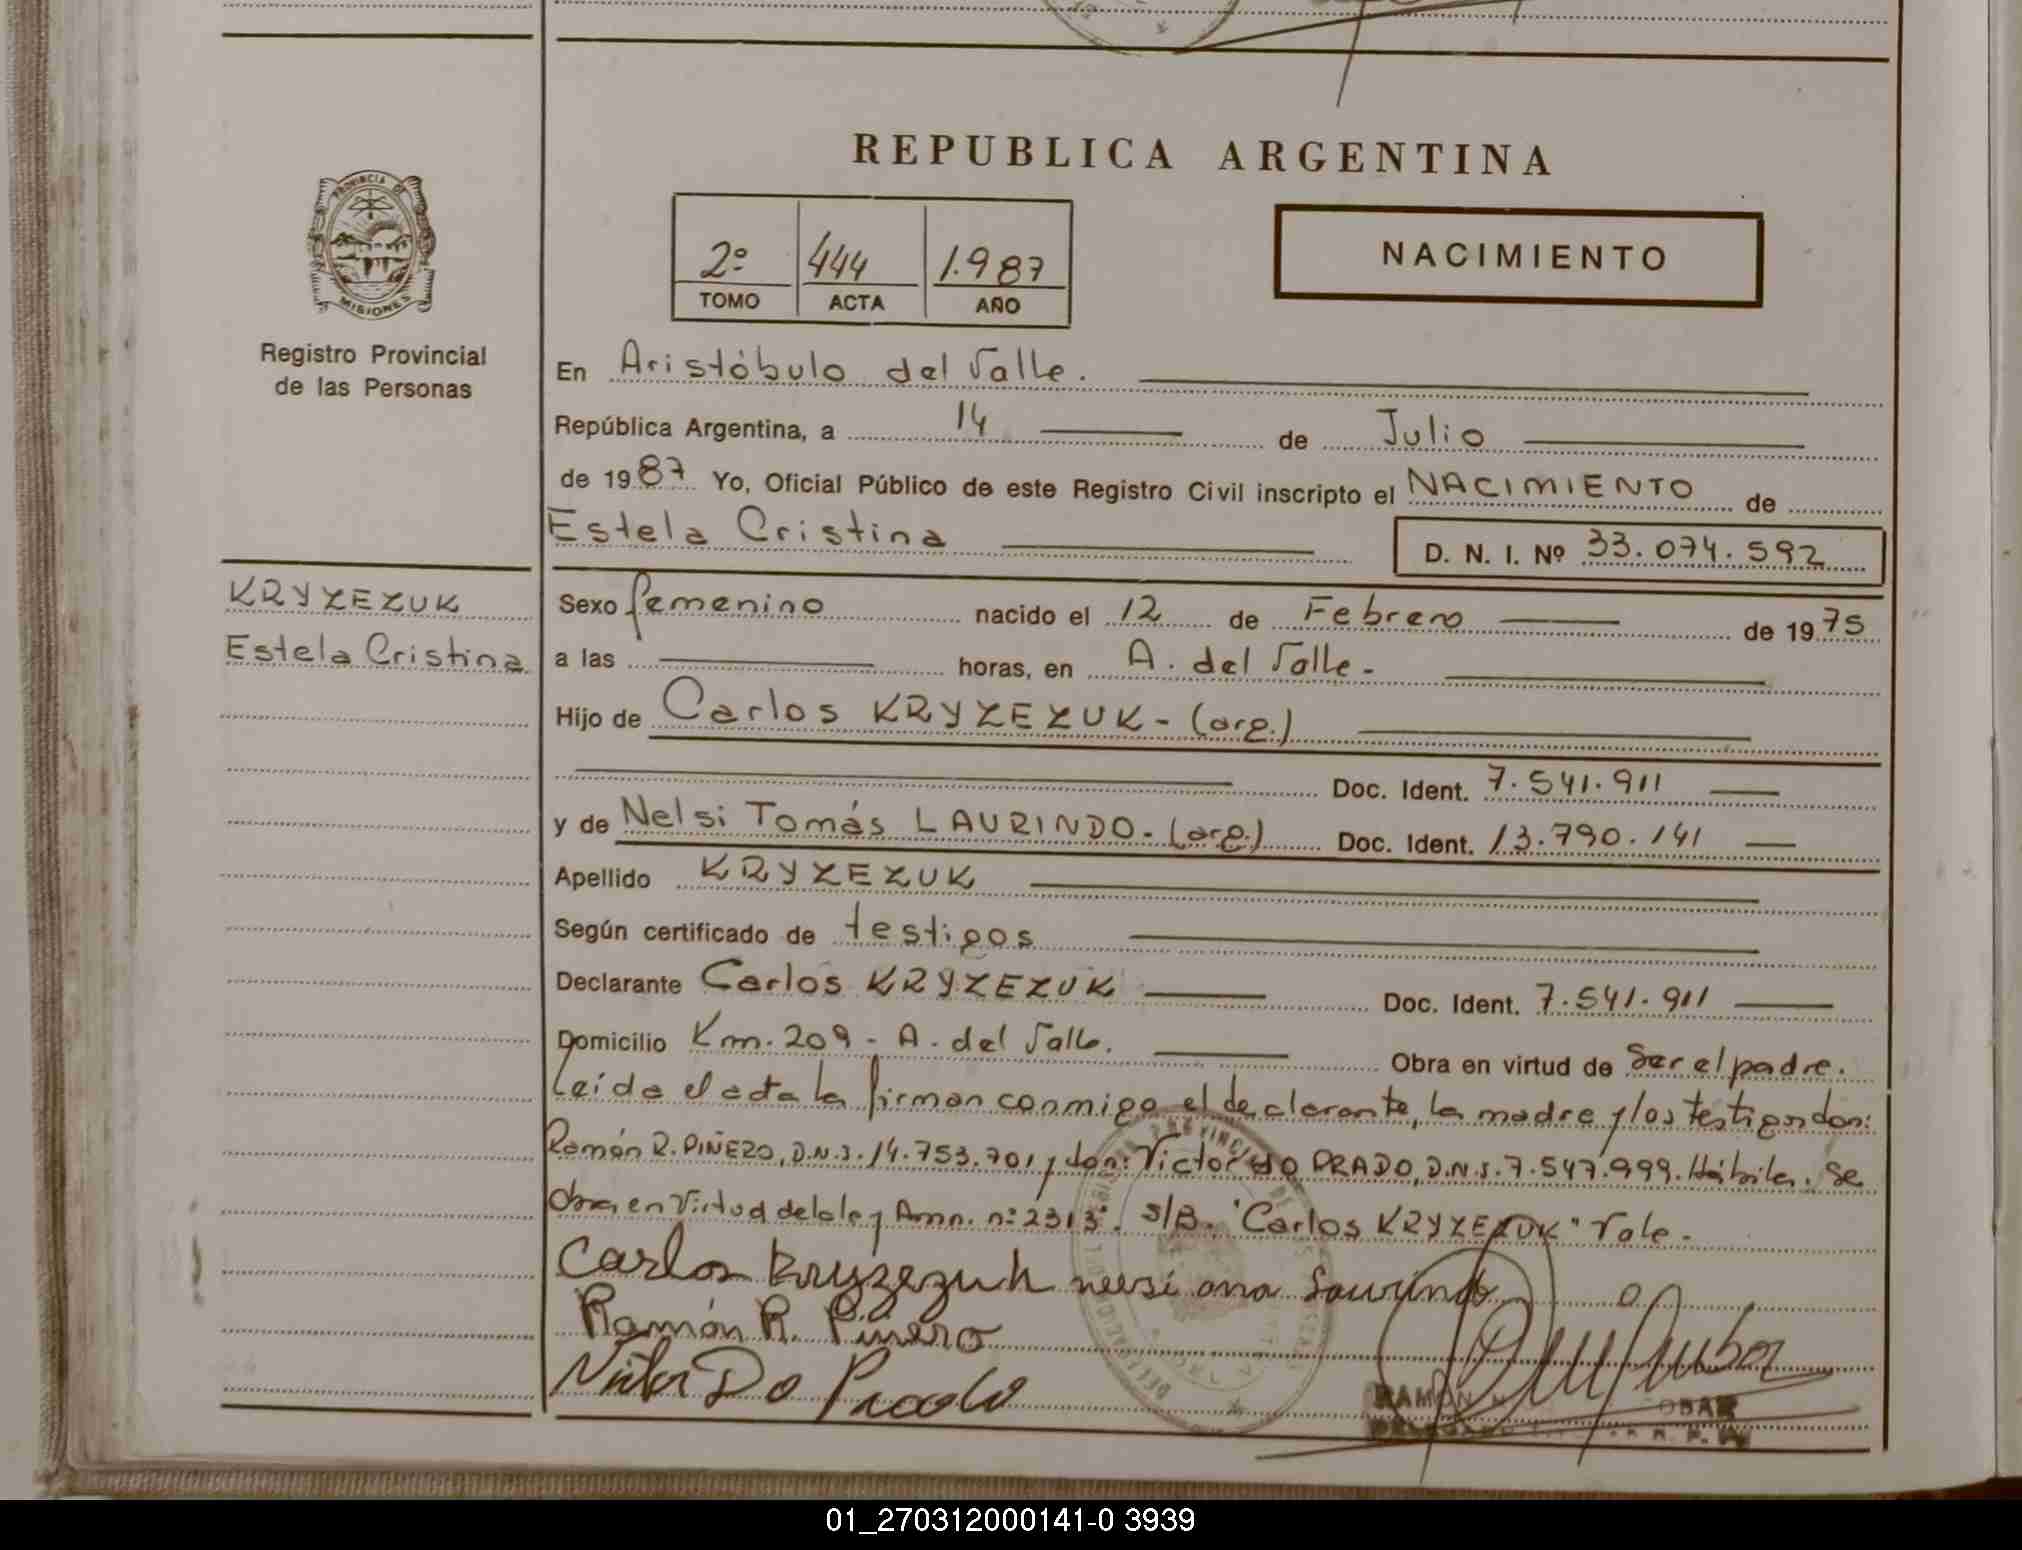 REPUBLICA ARGENTINA
PROVINCIA DE
MISIONES
Registro Provincial
de las Personas
2º 444 1.987
TOMO ACTA AÑO
NACIMIENTO
En Aristóbulo del Valle.
República Argentina, a 14 de Julio
de 1987 Yo, Oficial Público de este Registro Civil inscripto el NACIMIENTO de
Estela Cristina D. N. I. Nº 33.074.592
KRYZEZUK
Estela Cristina
Sexo femenino nacido el 12 de Febrero de 1975
a las horas, en A. del Valle.-
Hijo de Carlos KRYZEZUK - (arg.)
Doc. Ident. 7.541.911
y de Nelsi Tomás LAURINDO.- (arg.) Doc. Ident. 13.790.141
Apellido KRYZEZUK
Según certificado de testigos
Declarante Carlos KRYZEZUK Doc. Ident. 7.541.911
Domicilio Km. 209 - A. del Valle. Obra en virtud de Ser el padre.
Leída el acta la firman conmigo el declarante, la madre y los testigos don:
Ramón R. PIÑERO, D.N.I. 14.753.701 y don: Victor do PRADO, D.N.I. 7.547.999. Hábiles. Se
obra en Virtud de la ley Amn. nº 2313. S/B. "Carlos KRYZEZUK" Vale.-
Carlos Kryzezuk nersi ana Laurindo
Ramón R. Piñero
Victor Do Prado
RAMON
01_270312000141-0 3939